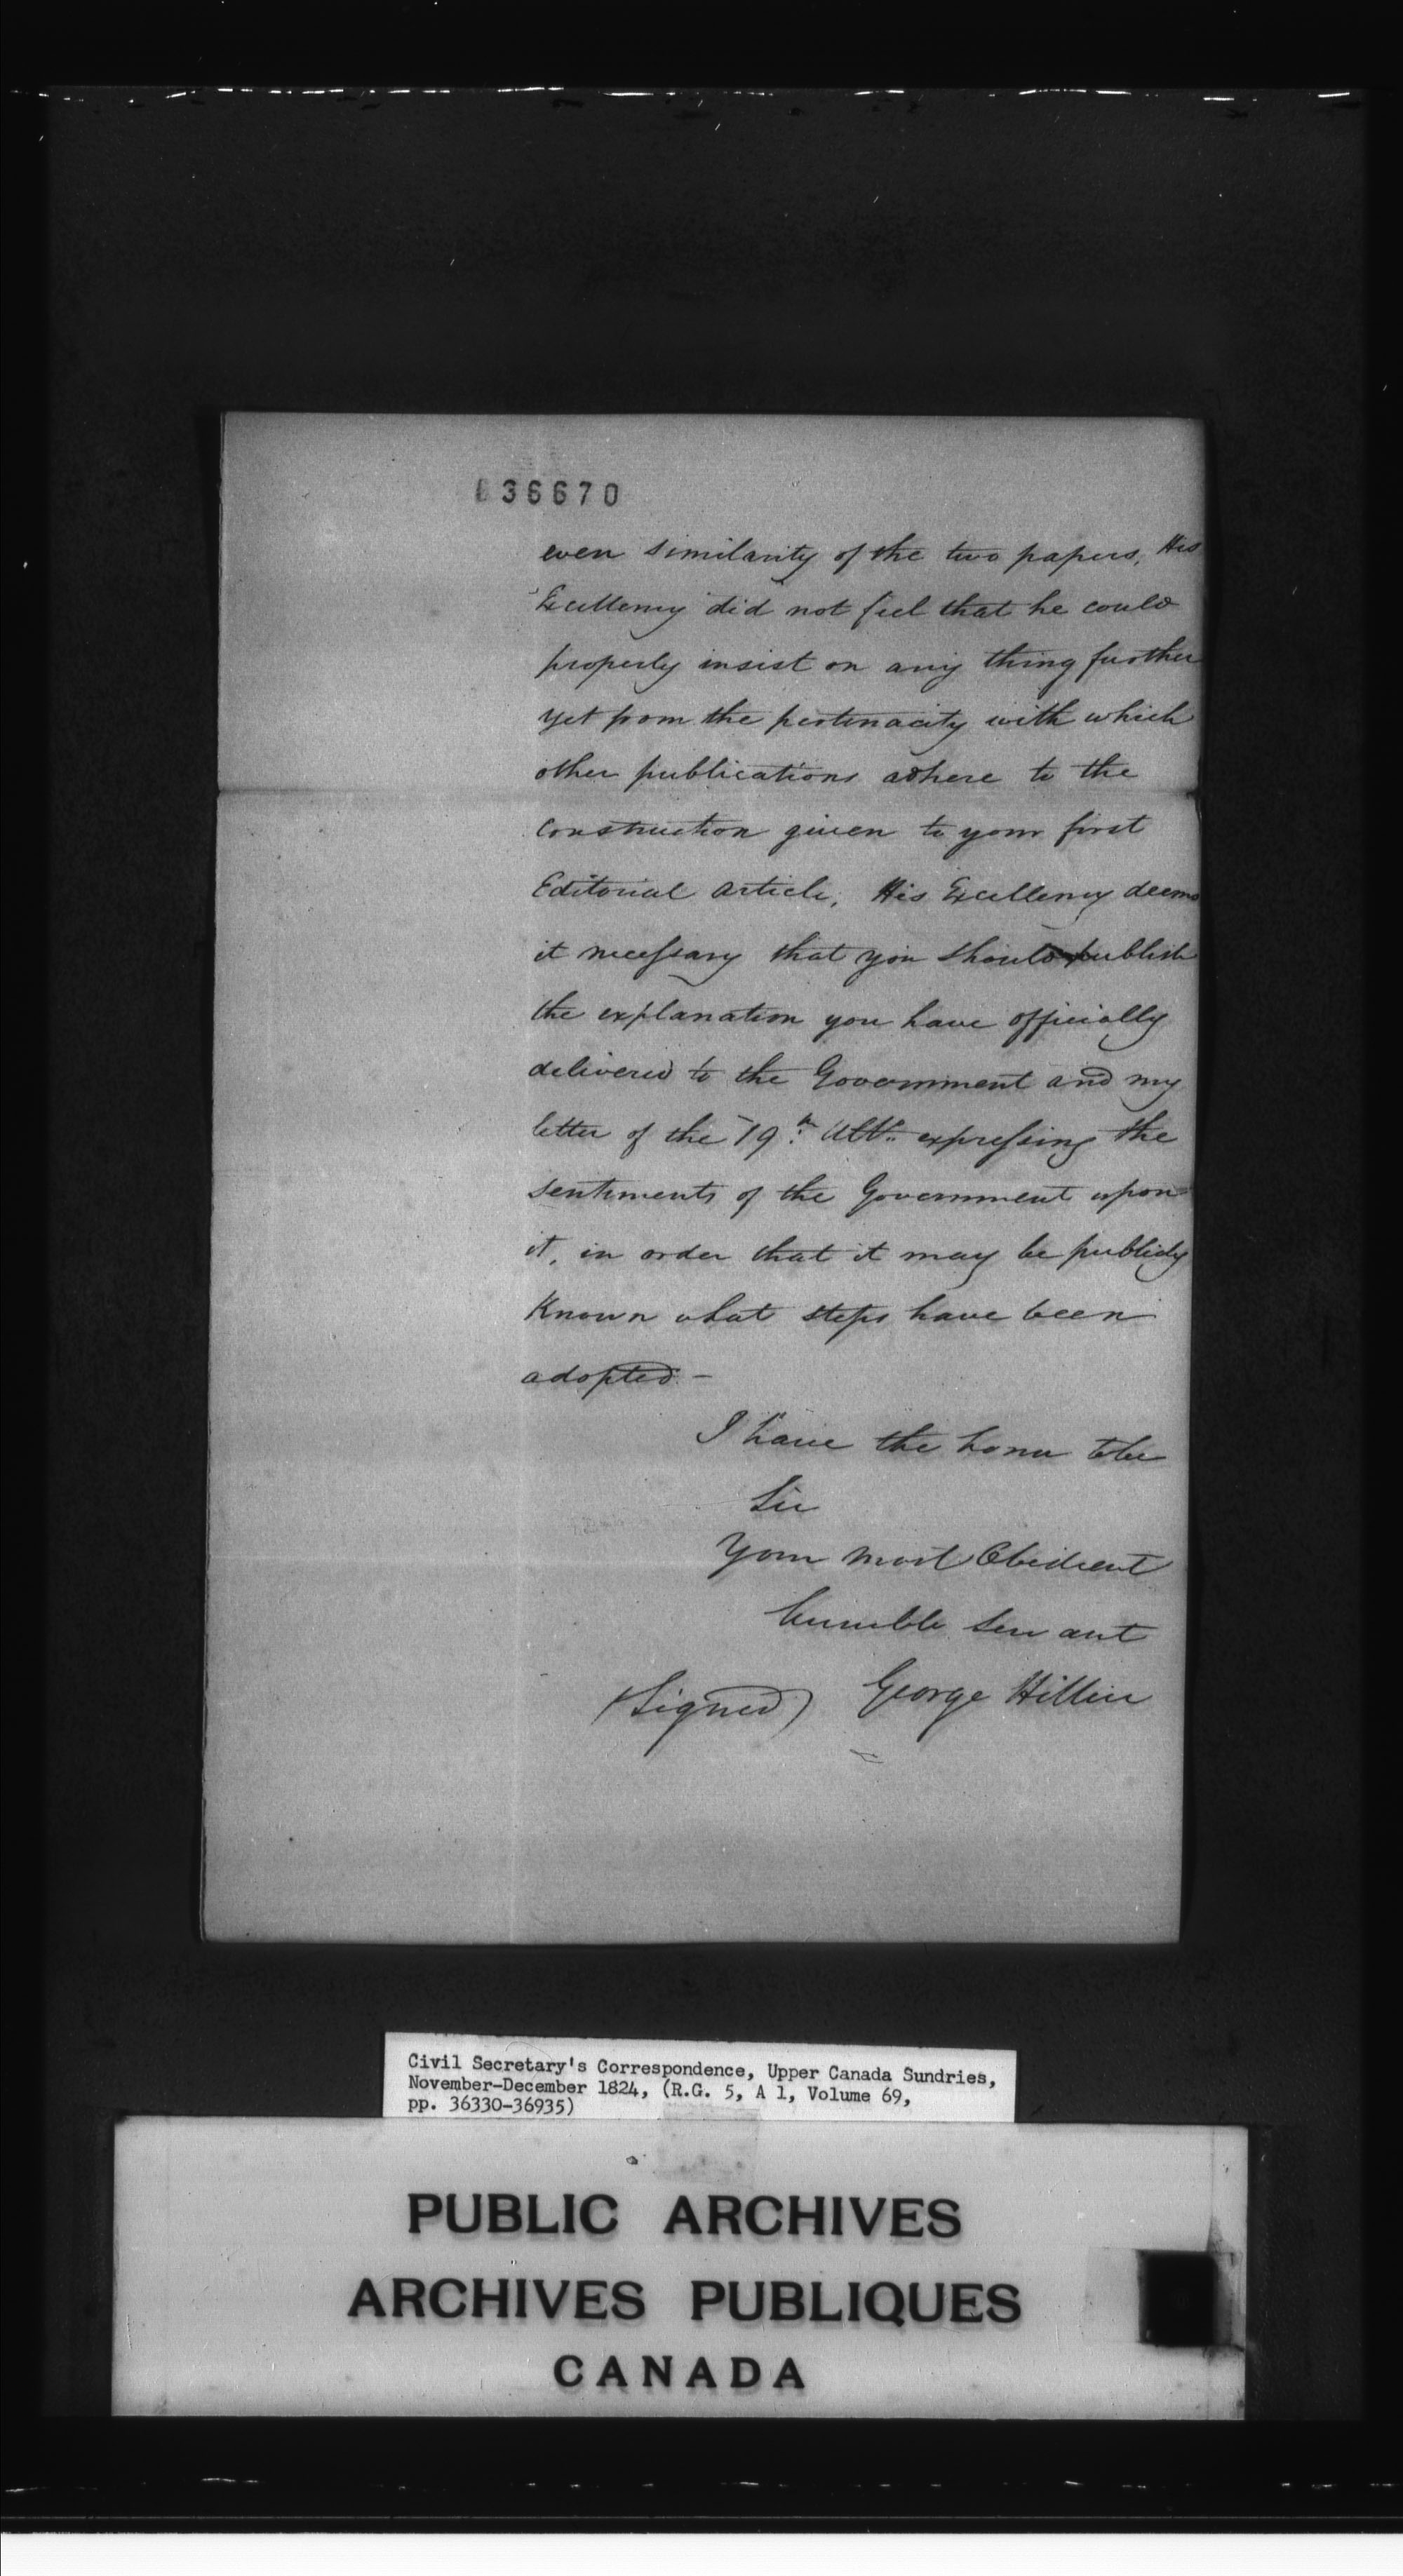 36670
even similarity of the two papers, His
Excellency did not feel that he could
properly insist on any thing further
yet from the pertinacity with which
other publications adhere to the
construction given to your first
Editorial article, His Excellency deems
it necessary that you should publish
the explanation you have officially
delivered to the Government and my
letter of the 19th Ulto. expressing the
sentiments of the Government upon
it, in order that it may be publicly
Known what steps have been
adopted. -
I have the honor to be
Sir
Your most Obedient
humble Servant
(Signed) George Hillier
Civil Secretary's Correspondence, Upper Canada Sundries,
November-December 1824, (R.G. 5, A 1, Volume 69,
pp. 36330-36935)
PUBLIC ARCHIVES
ARCHIVES PUBLIQUES
CANADA